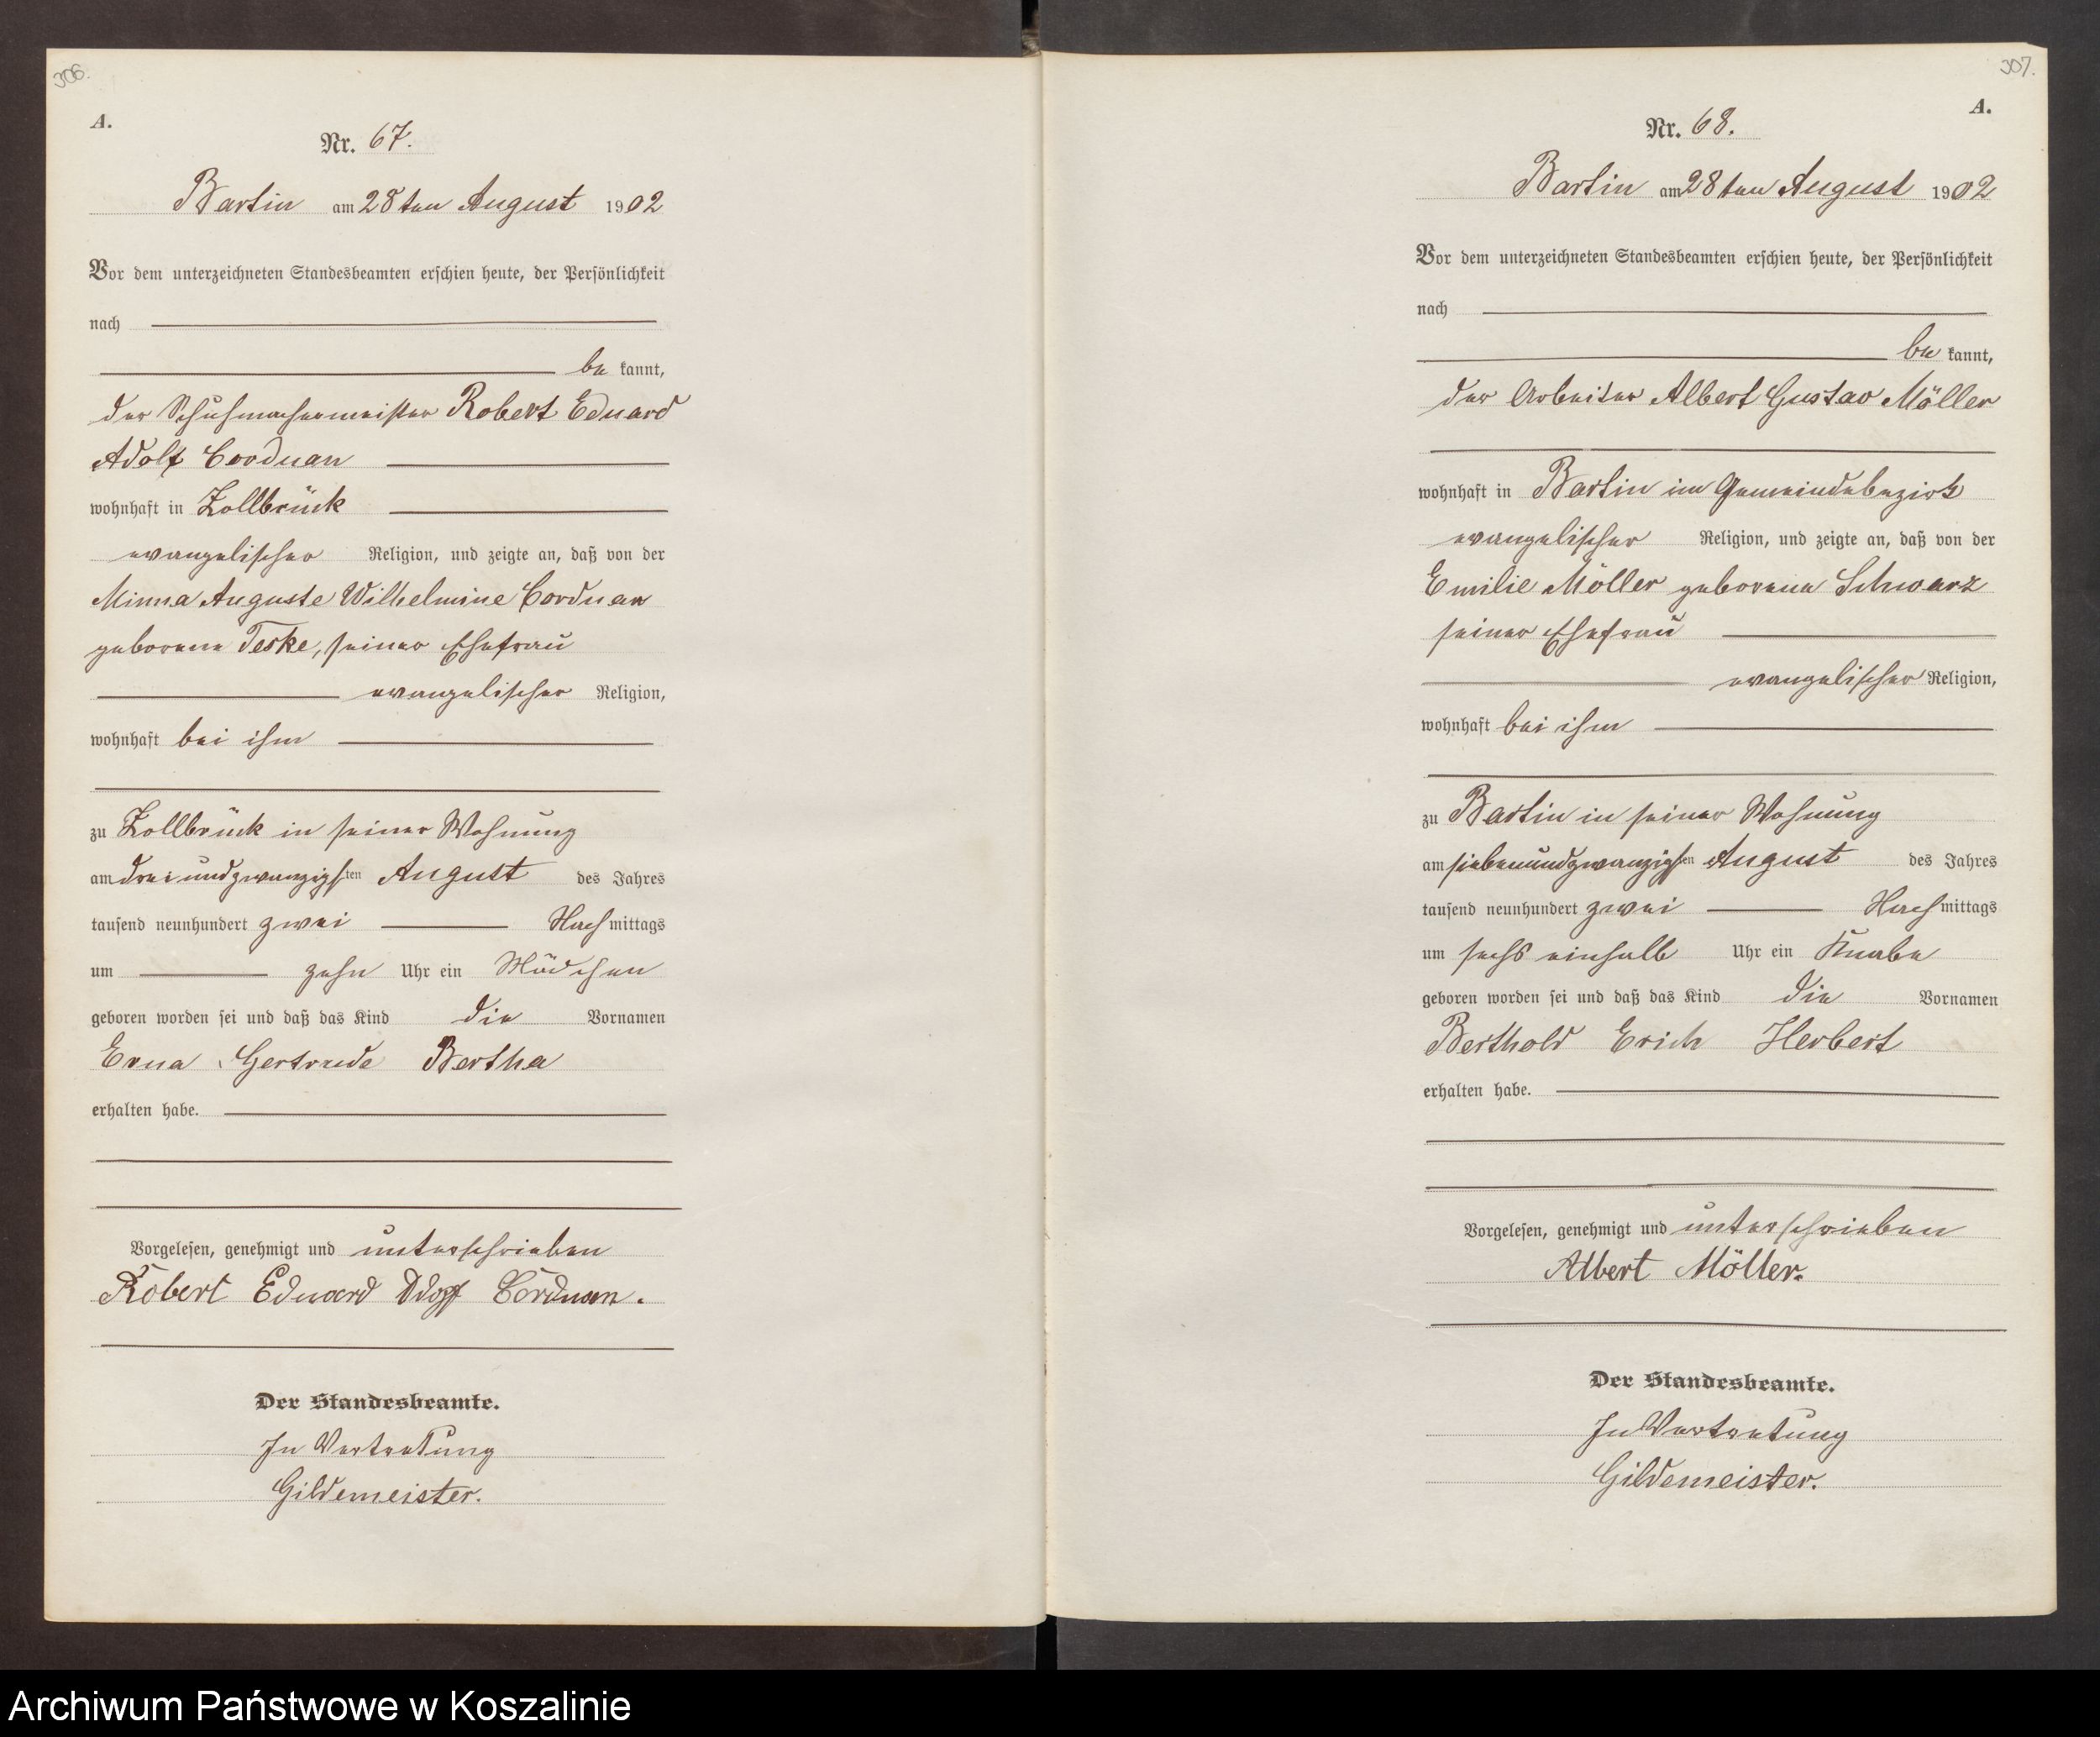 306.
A.
Nr. 67.
Bartin am 28ten August 1902
Vor dem unterzeichneten Standesbeamten erschien heute, der Persönlichkeit
nach
be kannt,
der Schuhmachermeister Robert Eduard
Adolf Corduan
wohnhaft in Zollbrück
evangelischer Religion, und zeigte an, daß von der
Minna Auguste Wilhelmine Corduan
geborene Teske, seiner Ehefrau
evangelischer Religion,
wohnhaft bei ihm
zu Zollbrück in seiner Wohnung
am dreiundzwanzigsten August des Jahres
tausend neunhundert zwei Nachmittags
um zehn Uhr ein Mädchen
geboren worden sei und daß das Kind die Vornamen
Erna Gertrude Bertha
erhalten habe.
Vorgelesen, genehmigt und unterschrieben
Robert Eduard Adolf Corduan.
Der Standesbeamte.
In Vertretung
Gildemeister.
307.
A.
Nr. 68.
Bartin am 28ten August 1902
Vor dem unterzeichneten Standesbeamten erschien heute, der Persönlichkeit
nach
be kannt,
der Arbeiter Albert Gustav Möller
wohnhaft in Bartin im Gemeindebezirk
evangelischer Religion, und zeigte an, daß von der
Emilie Möller geborene Schwarz
seiner Ehefrau
evangelischer Religion,
wohnhaft bei ihm
zu Bartin in seiner Wohnung
am siebenundzwanzigsten August des Jahres
tausend neunhundert zwei Nachmittags
um sechs einhalb Uhr ein Knabe
geboren worden sei und daß das Kind die Vornamen
Berthold Erich Herbert
erhalten habe.
Vorgelesen, genehmigt und unterschrieben
Albert Möller.
Der Standesbeamte.
In Vertretung
Gildemeister.
Archiwum Państwowe w Koszalinie